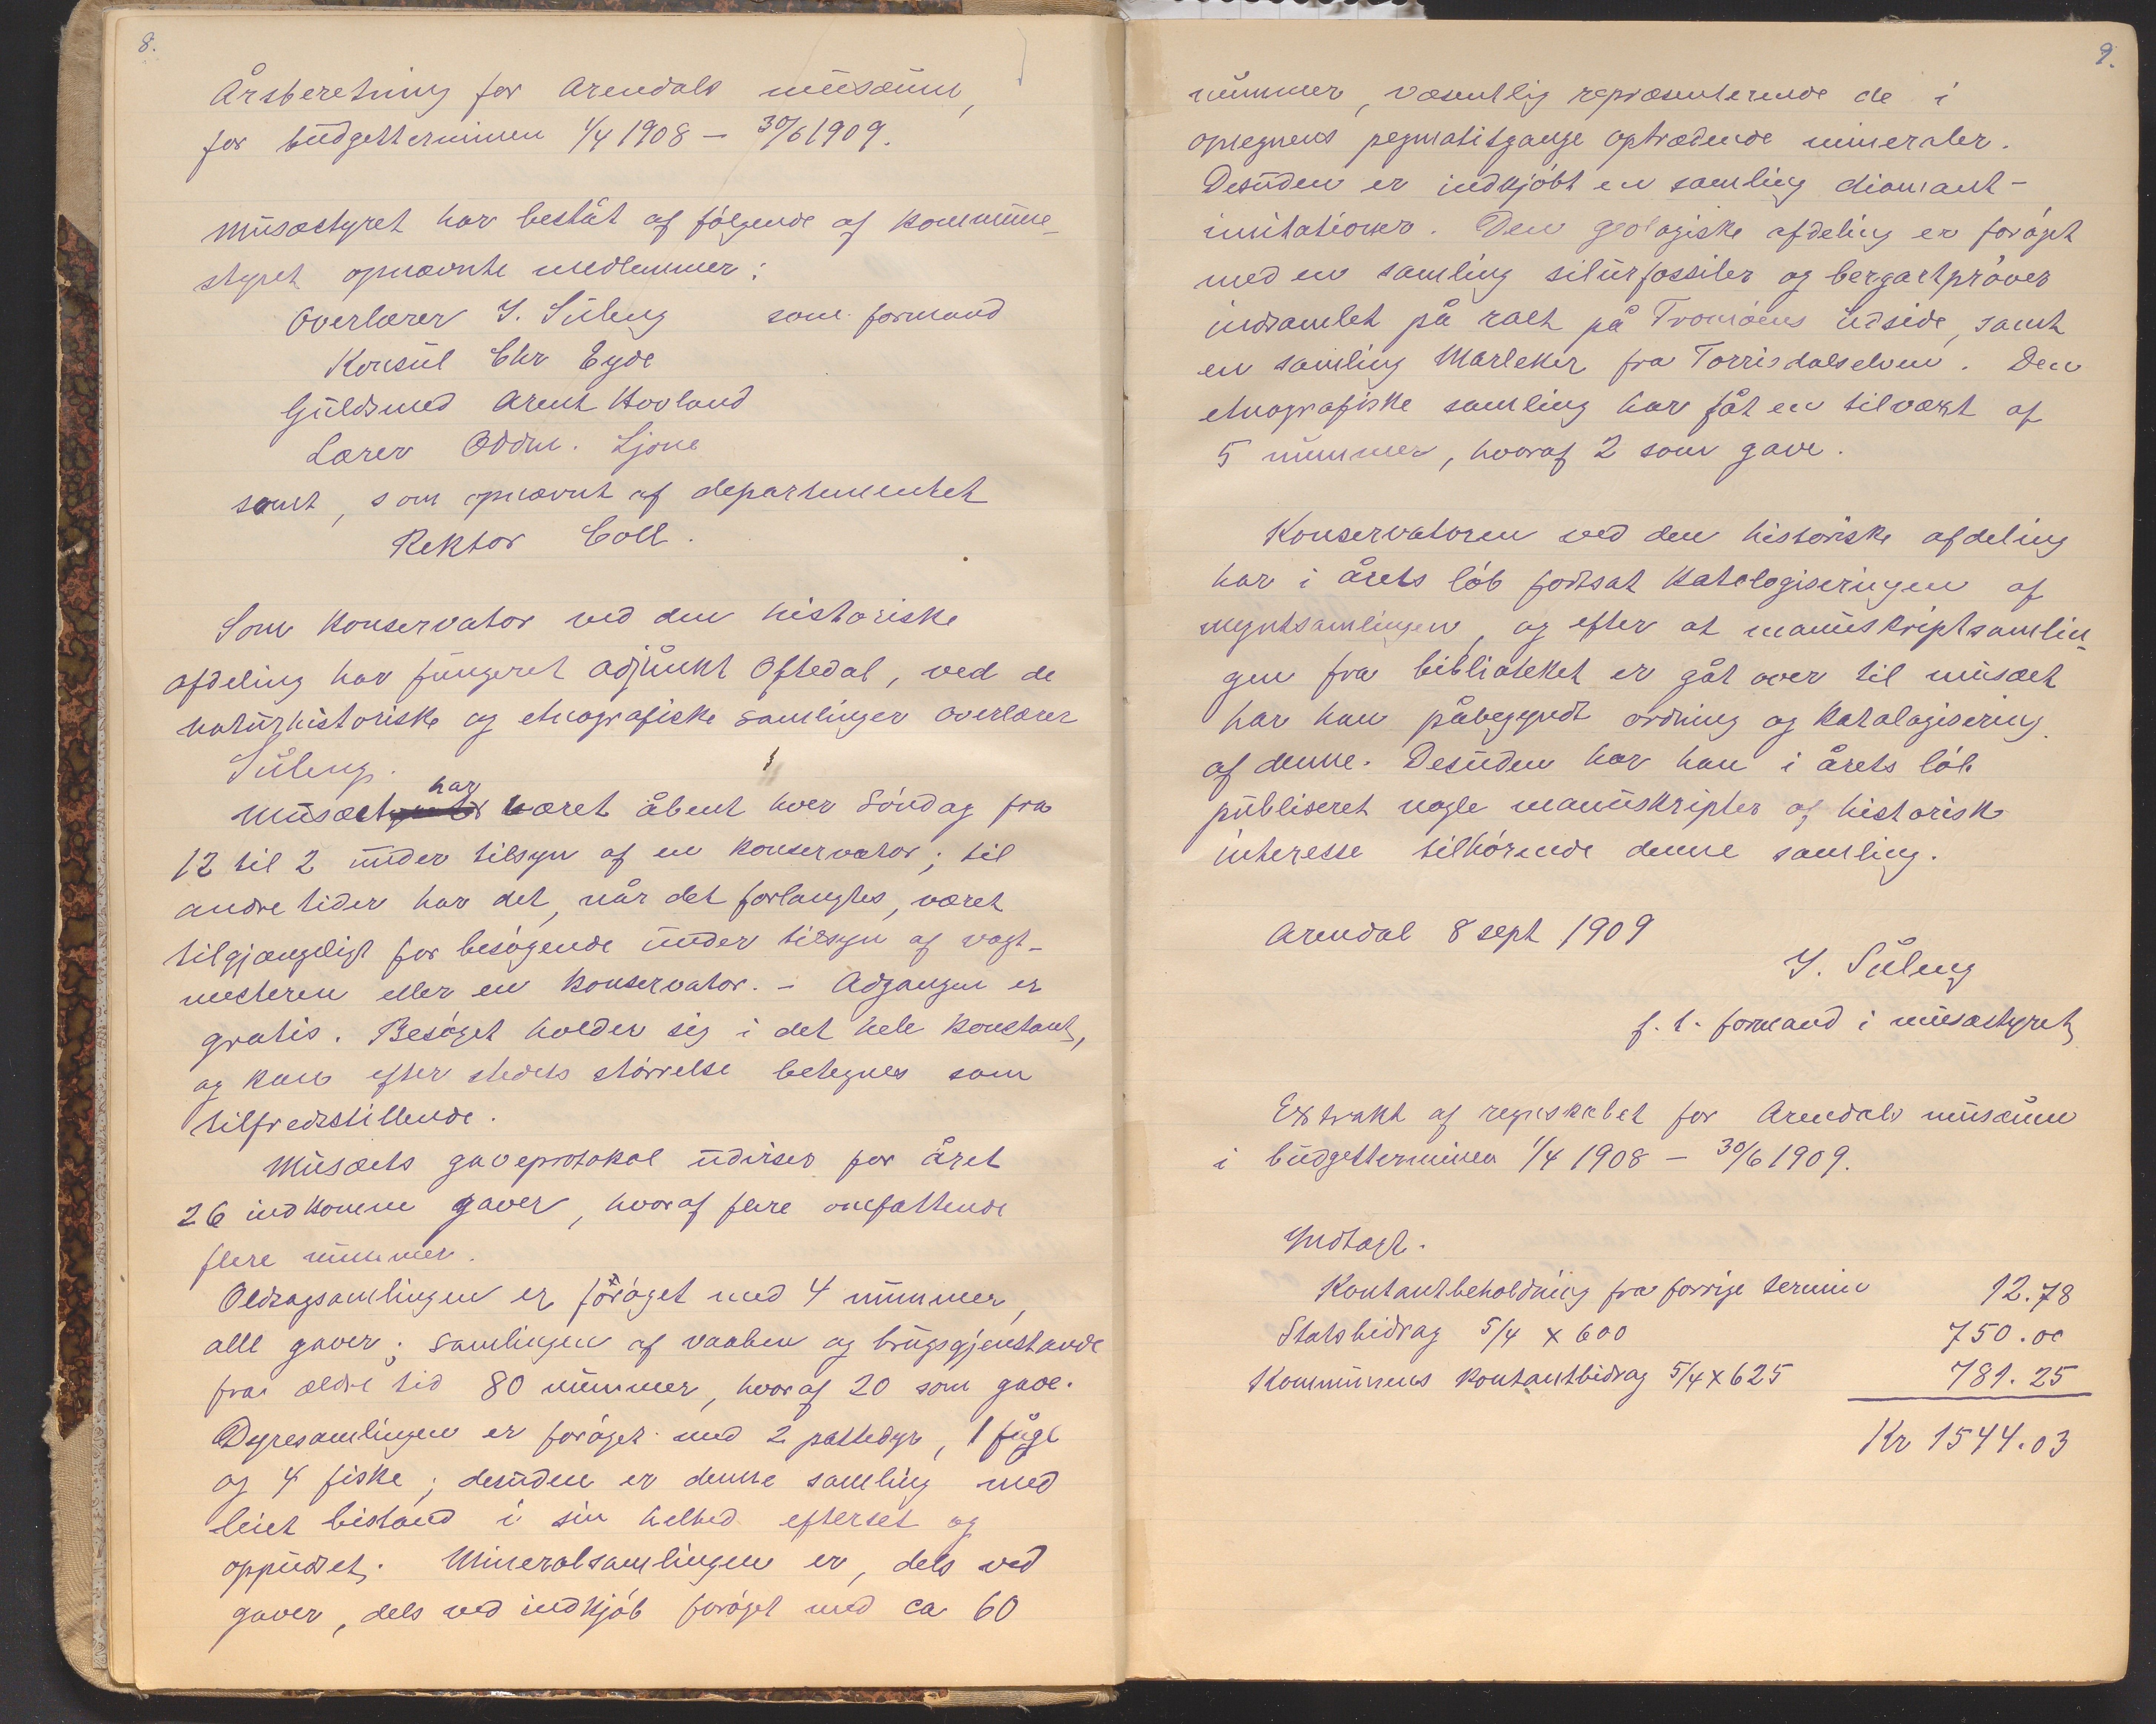 8.
Årsberetning for Arendals musæum,
for budgetterminen 1/4 1908 - 30/6 1909.
Musæstyret har beståt af følgende af kommune-
styret opnævnte medlemmer:
Overlærer Y. Süleng som formand
Konsul Chr Eyde
Guldsmed Arent Hovland
Lærer Oddm. Ljone
samt, som opnævnt af departementet
Rektor Coll.
Som konservator ved den historiske
afdeling har fungeret adjunkt Oftedal, ved de
naturhistoriske og etnografiske samlinger overlærer
Süleng.
Musæet har været åbent hver søndag fra
12 til 2 under tilsyn af en konservator; til
andre tider har det, når det forlangtes, været
tilgjængeligt for besøgende under tilsyn af vagt-
mesteren eller en konservator. - Adgangen er
gratis. Besøget holder sig i det hele konstant,
og kan efter stedets størrelse betegnes som
tilfredsstillende.
Musæets gaveprotokol udviser for året
26 indkomne gaver, hvoraf flere omfattende
flere nummer.
Oldsagsamlingen er forøget med 4 nummer,
alle gaver; samlingen af vaaben og brugsgjenstande
fra ældre tid 80 nummer, hvoraf 20 som gave.
Dyresamlingen er forøget med 2 pattedyr, 1 fugl
og 4 fiske; desuden er denne samling med
leiet bistand i sin helhed efterset og
oppudset. Mineralsamlingen er, dels ved
gaver, dels ved indkjøb forøget med ca 60
9.
nummer, væsentlig repræsenterende de i
opegnens pegmatitgange optrædende mineraler.
Desuden er indkjøbt en samling diamant-
imitationer. Den geologiske afdeling er forøget
med en samling silurfossiler og bergartprøver
indsamlet på raet på Tromøens udside, samt
en samling Marleker fra Torrisdalselven. Den
etnografiske samling har fåt en tilvækst af
5 nummer, hvoraf 2 som gave.
Konservatoren ved den historiske afdeling
har i årets løb fortsat katalogiseringen af
myntsamlingen, og efter at manuskriptsamlin-
gen fra biblioteket er gåt over til musæet
har han påbegyndt ordning og katalogisering
af denne. Desuden har han i årets løb
publiseret nogle manuskripter af historisk
interesse tilhørende denne samling.
Arendal 8 sept 1909
Y. Süleng
f. t. formand i musæstyret
Extrakt af regnskabet for Arendals musæum
i budgetterminen 1/4 1908 - 30/6 1909.
Indtægt.
Kontantbeholdning fra forrige termin 12.78
Statsbidrag 5/4 x 600 750.00
Kommunens kontantbidrag 5/4 x 625 781.25
Kr 1544.03